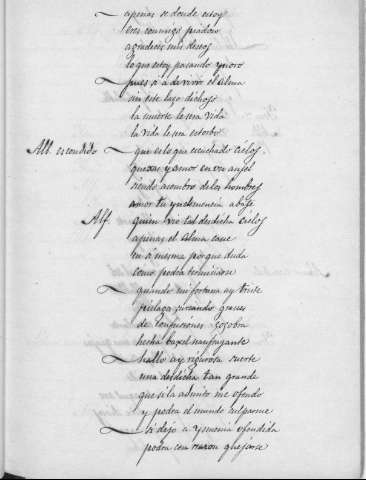 apenas se donde estoy
eres conmigo piadoso
agradeces mis deseos
lo que estoy pasando ynoro
pues si a de vivir el alma
sin este lazo dichoso
la muerte le sera vida
la vida le sera estorbo
Alf. escondido que es lo que e escuchado cielos.
quexas y amor en un angel
siendo asombro de los hombres
amor tu ynclemencia abate
Alf. quien vio tal desdicha cielos
apenas el alma cave
en si mesma porque duda
como podra
quando mi fortuna ay triste
pielago surcando graves
de confusiones zozobra
hecha baxel naufragante
hallo ay rigurosa suerte
una desdicha tan grande
que si la admito me ofendo
y podra el mundo culparme
si dejo a ysmenia ofendida
podra con razon quejarse